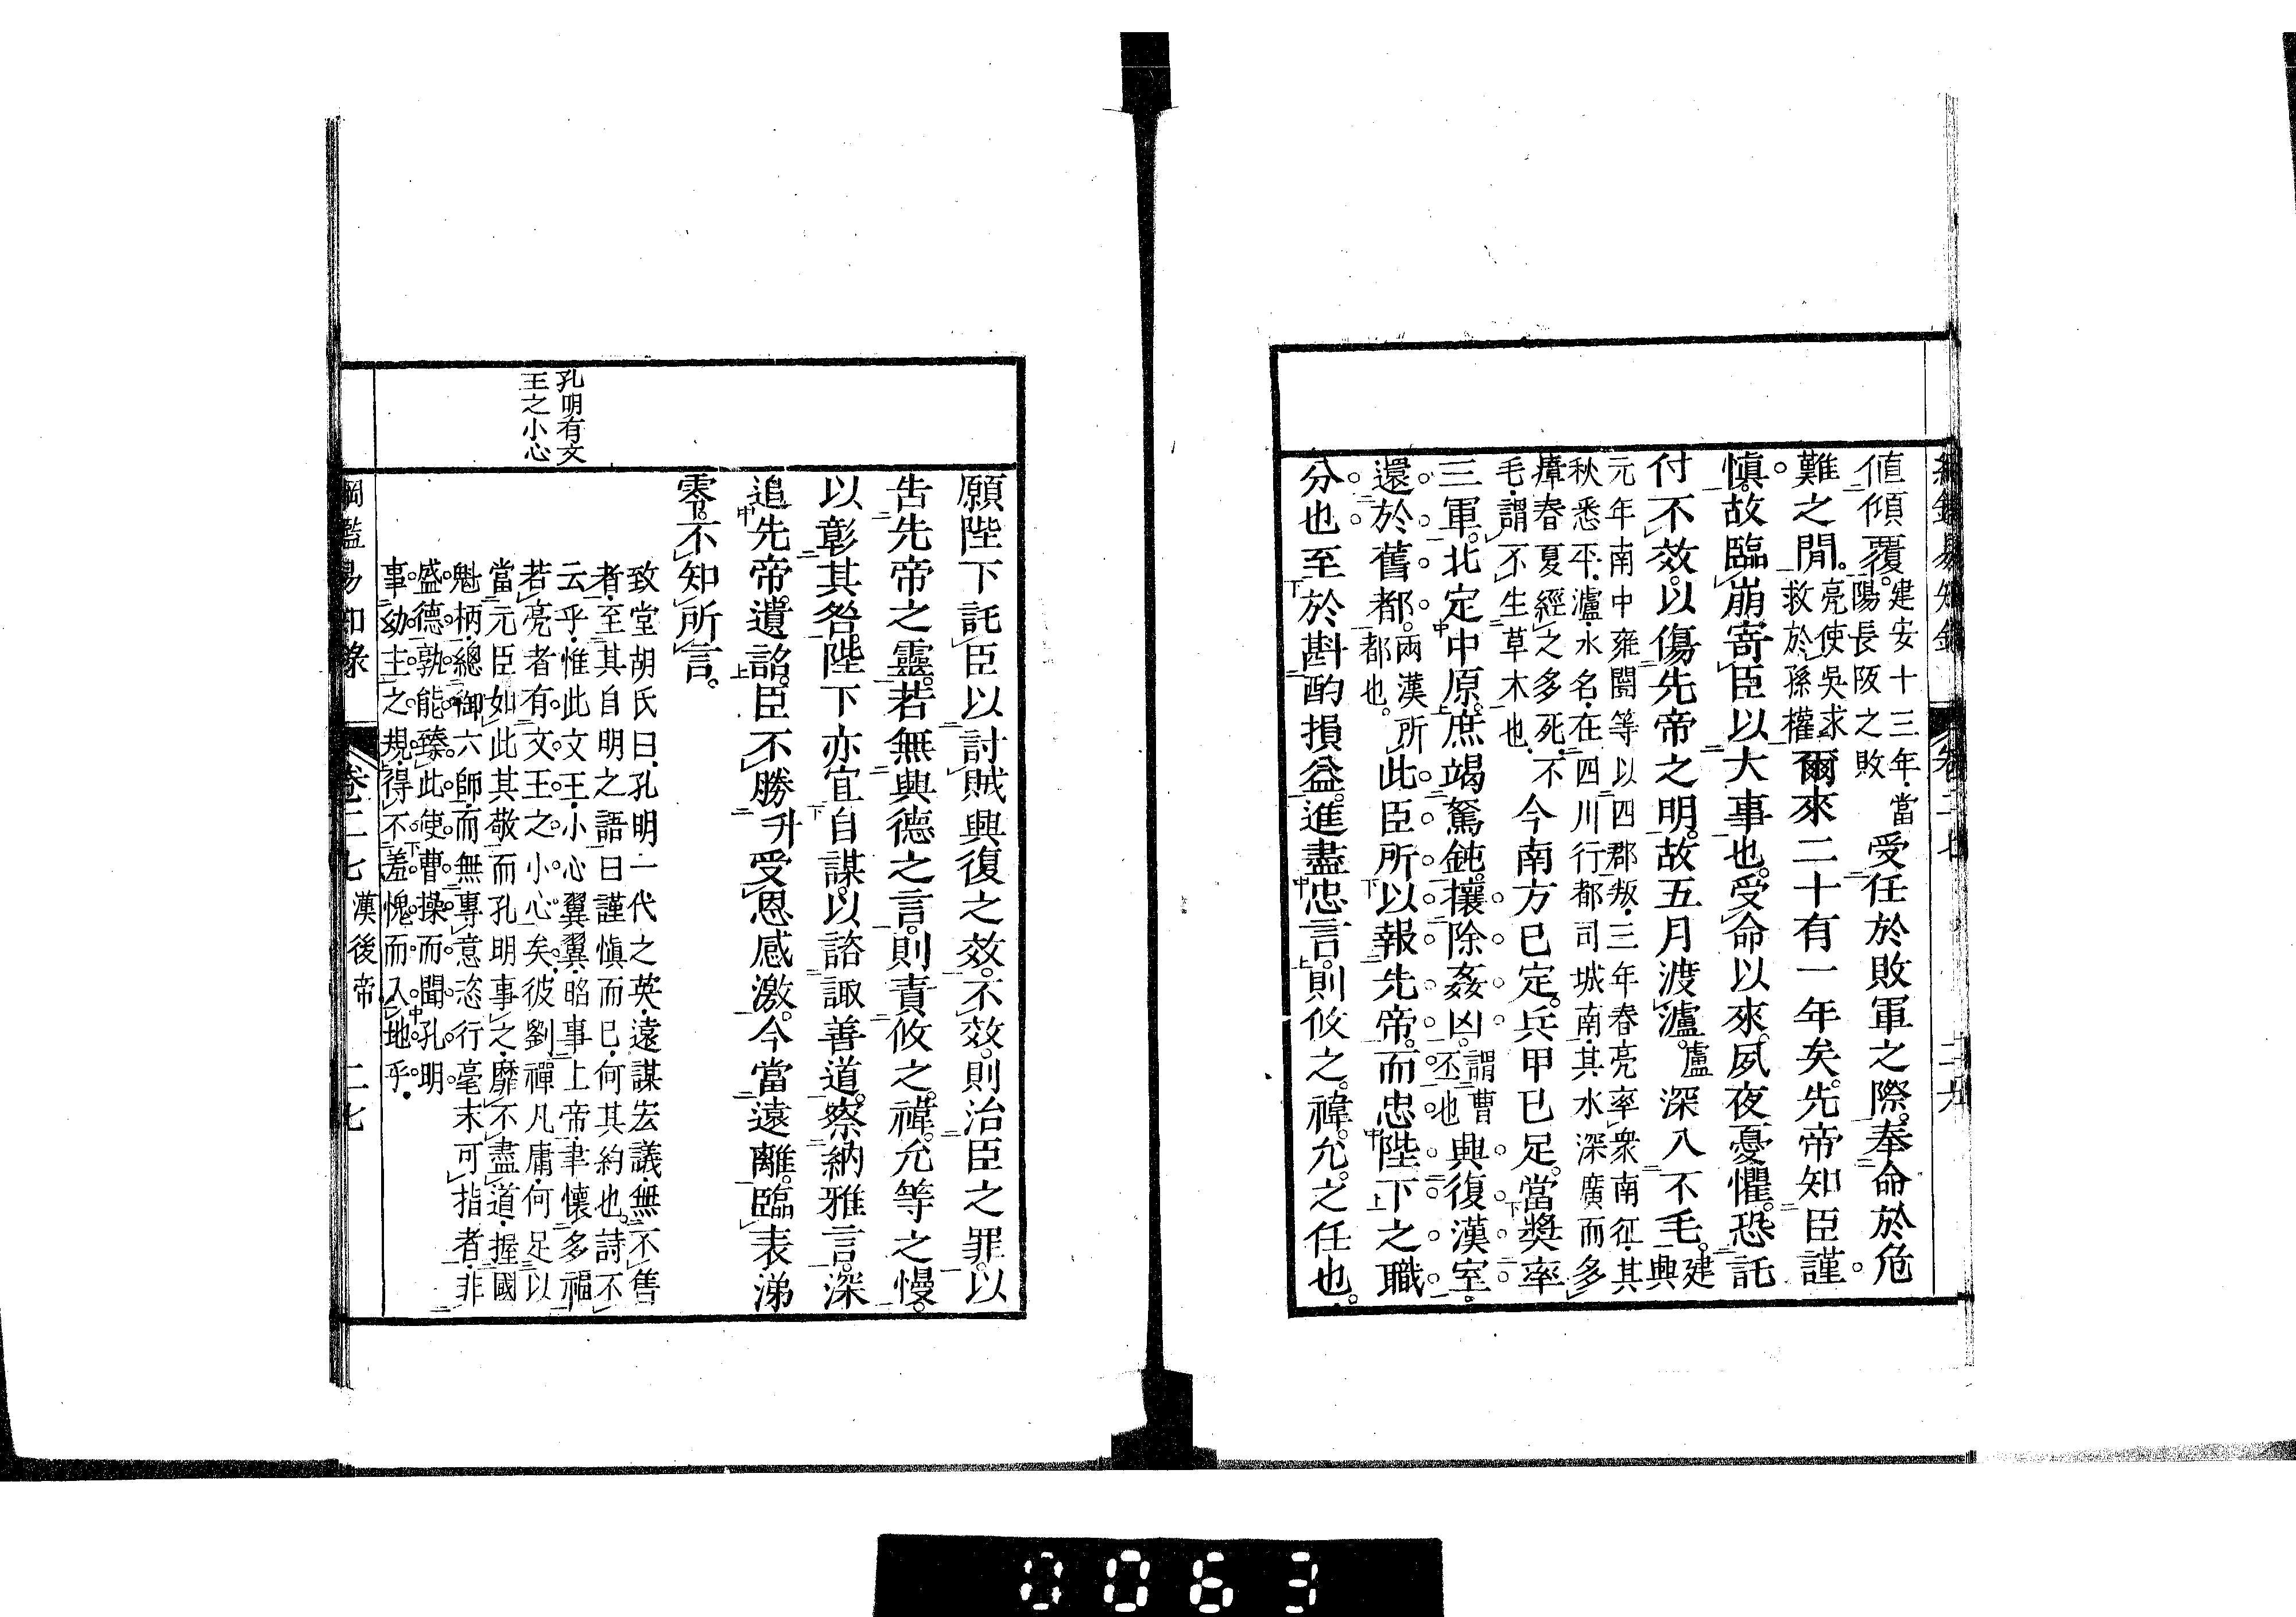 値傾覆。建安十三年、當陽長阪之敗受任於敗軍之際。奉命於危
難之閒。亮使吳求救於孫權爾來二十有一年矣。先帝知臣謹
愼。故臨崩寄臣以大事也。受命以來。夙夜憂懼。恐託
付不效。以傷先帝之明。故五月渡瀘。盧深入不毛。建興
元年南中雍闓等以四郡叛、三年春亮率衆南征、其
秋悉平、瀘水名、在四川行都司城南、其水深廣而多
瘴、春夏經之多死、不毛、謂不生草木也、今南方已定。兵甲已足。當獎率
三軍。北定中原。庶竭駑鈍。攘除姦凶。謂曹丕也興復漢室。
還於舊都。兩漢所都也。此臣所以報先帝。而忠陛下之職
分也。至於斟酌損益。進盡忠言。則攸之。禕。允。之任也。
孔明有文
王之小心
願陛下託臣以討賊興復之效。不效。則治臣之罪。以
告先帝之靈。若無興德之言。則責攸之。禕。允等之慢。
以彰其咎。陛下亦宜自謀。以諮諏善道。察納雅言。深
追先帝遺詔。臣不勝升受恩感激。今當遠離。臨表涕
零。不知所言。
致堂胡氏曰、孔明一代之英、遠謀宏議、無不售
者、至其自明之語曰謹愼而已、何其約也。詩不
云乎、惟此文王、小心翼翼、昭事上帝、聿懷多福、
若亮者有文王之小心矣、彼劉禪凡庸、何足以
當元臣如此其敬、而孔明事之、靡不盡道、握國
魁柄、總御六師、而無專意恣行毫末可指者、非
盛德孰能臻此、使曹操而聞孔明
事幼主之規、得不羞愧而入地乎、
綱鑑易知錄 卷二七 漢後帝 二七